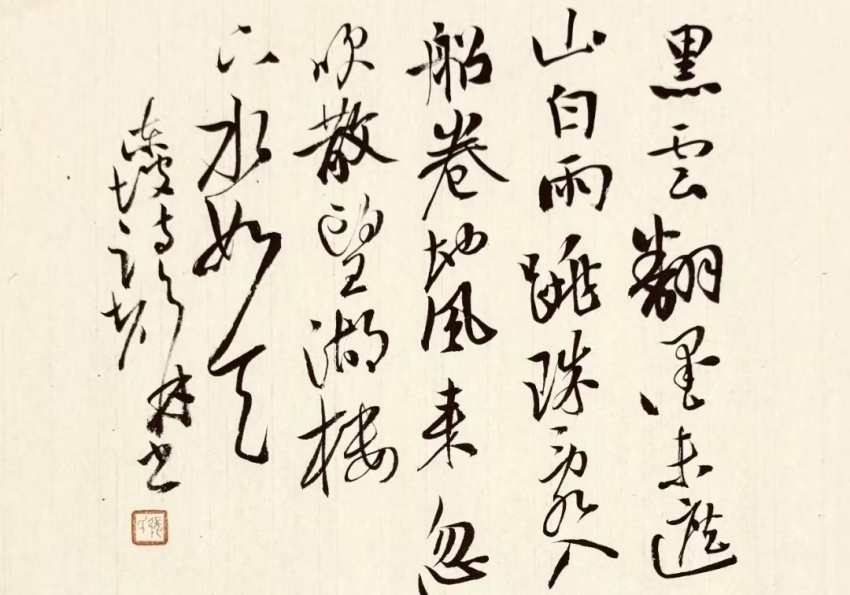 黑雲翻墨未遮
山白雨跳珠亂入
船卷地風来忽
吹散望湖樓
下水如天
東坡詩
書